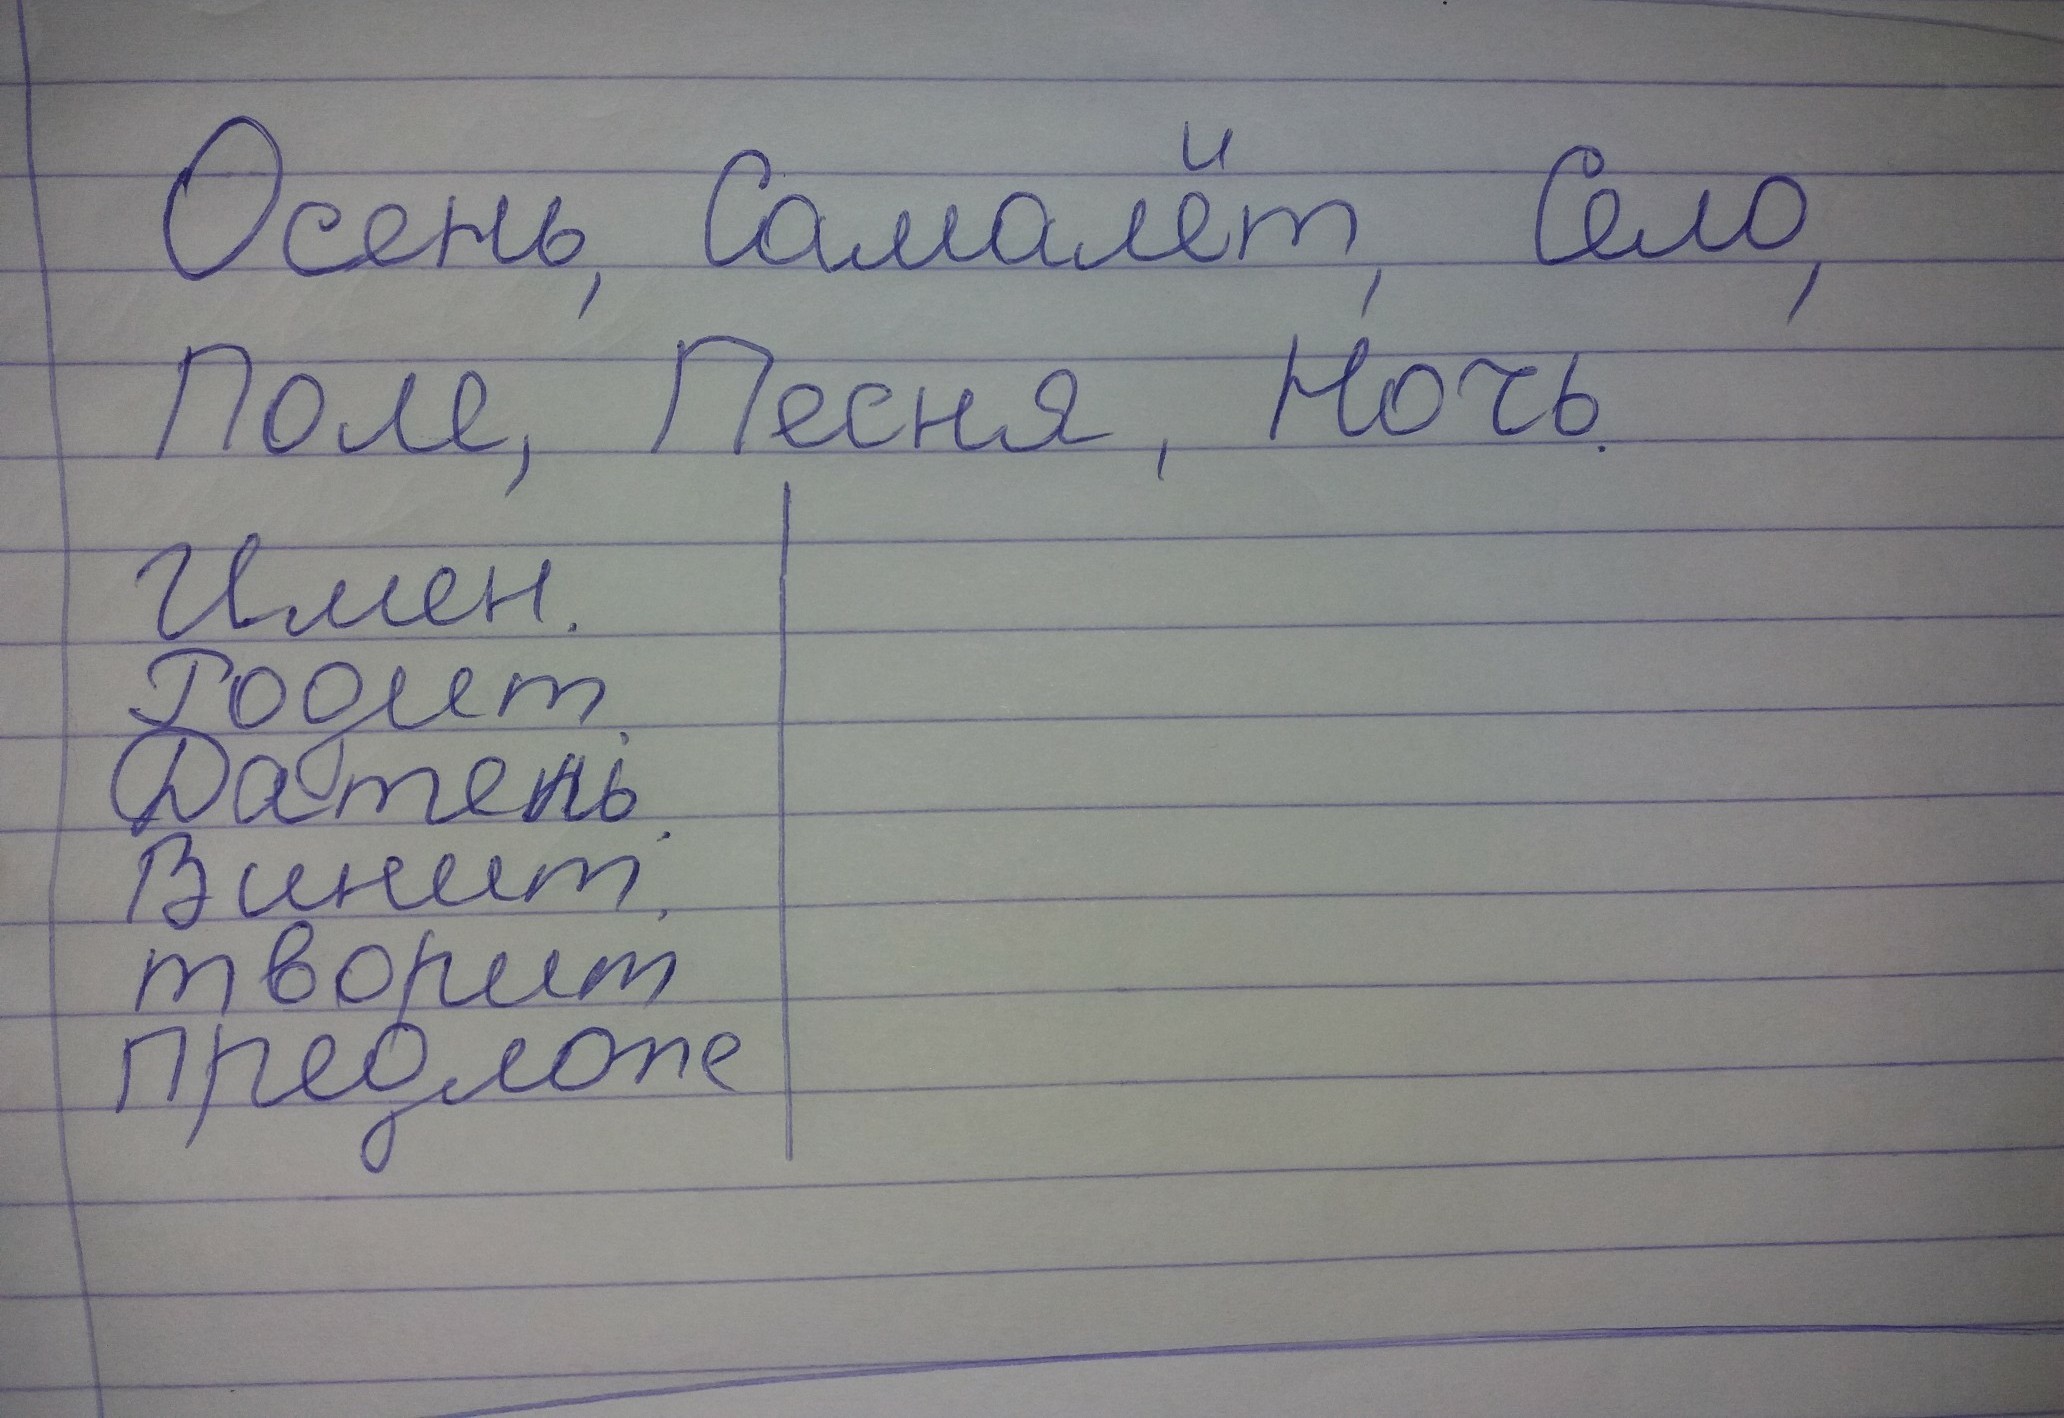 Осень, Самалёт, Село,
Поле, Песня, Ночь.
Имен.
Родит.
Датень.
Винит.
творит
предлоте